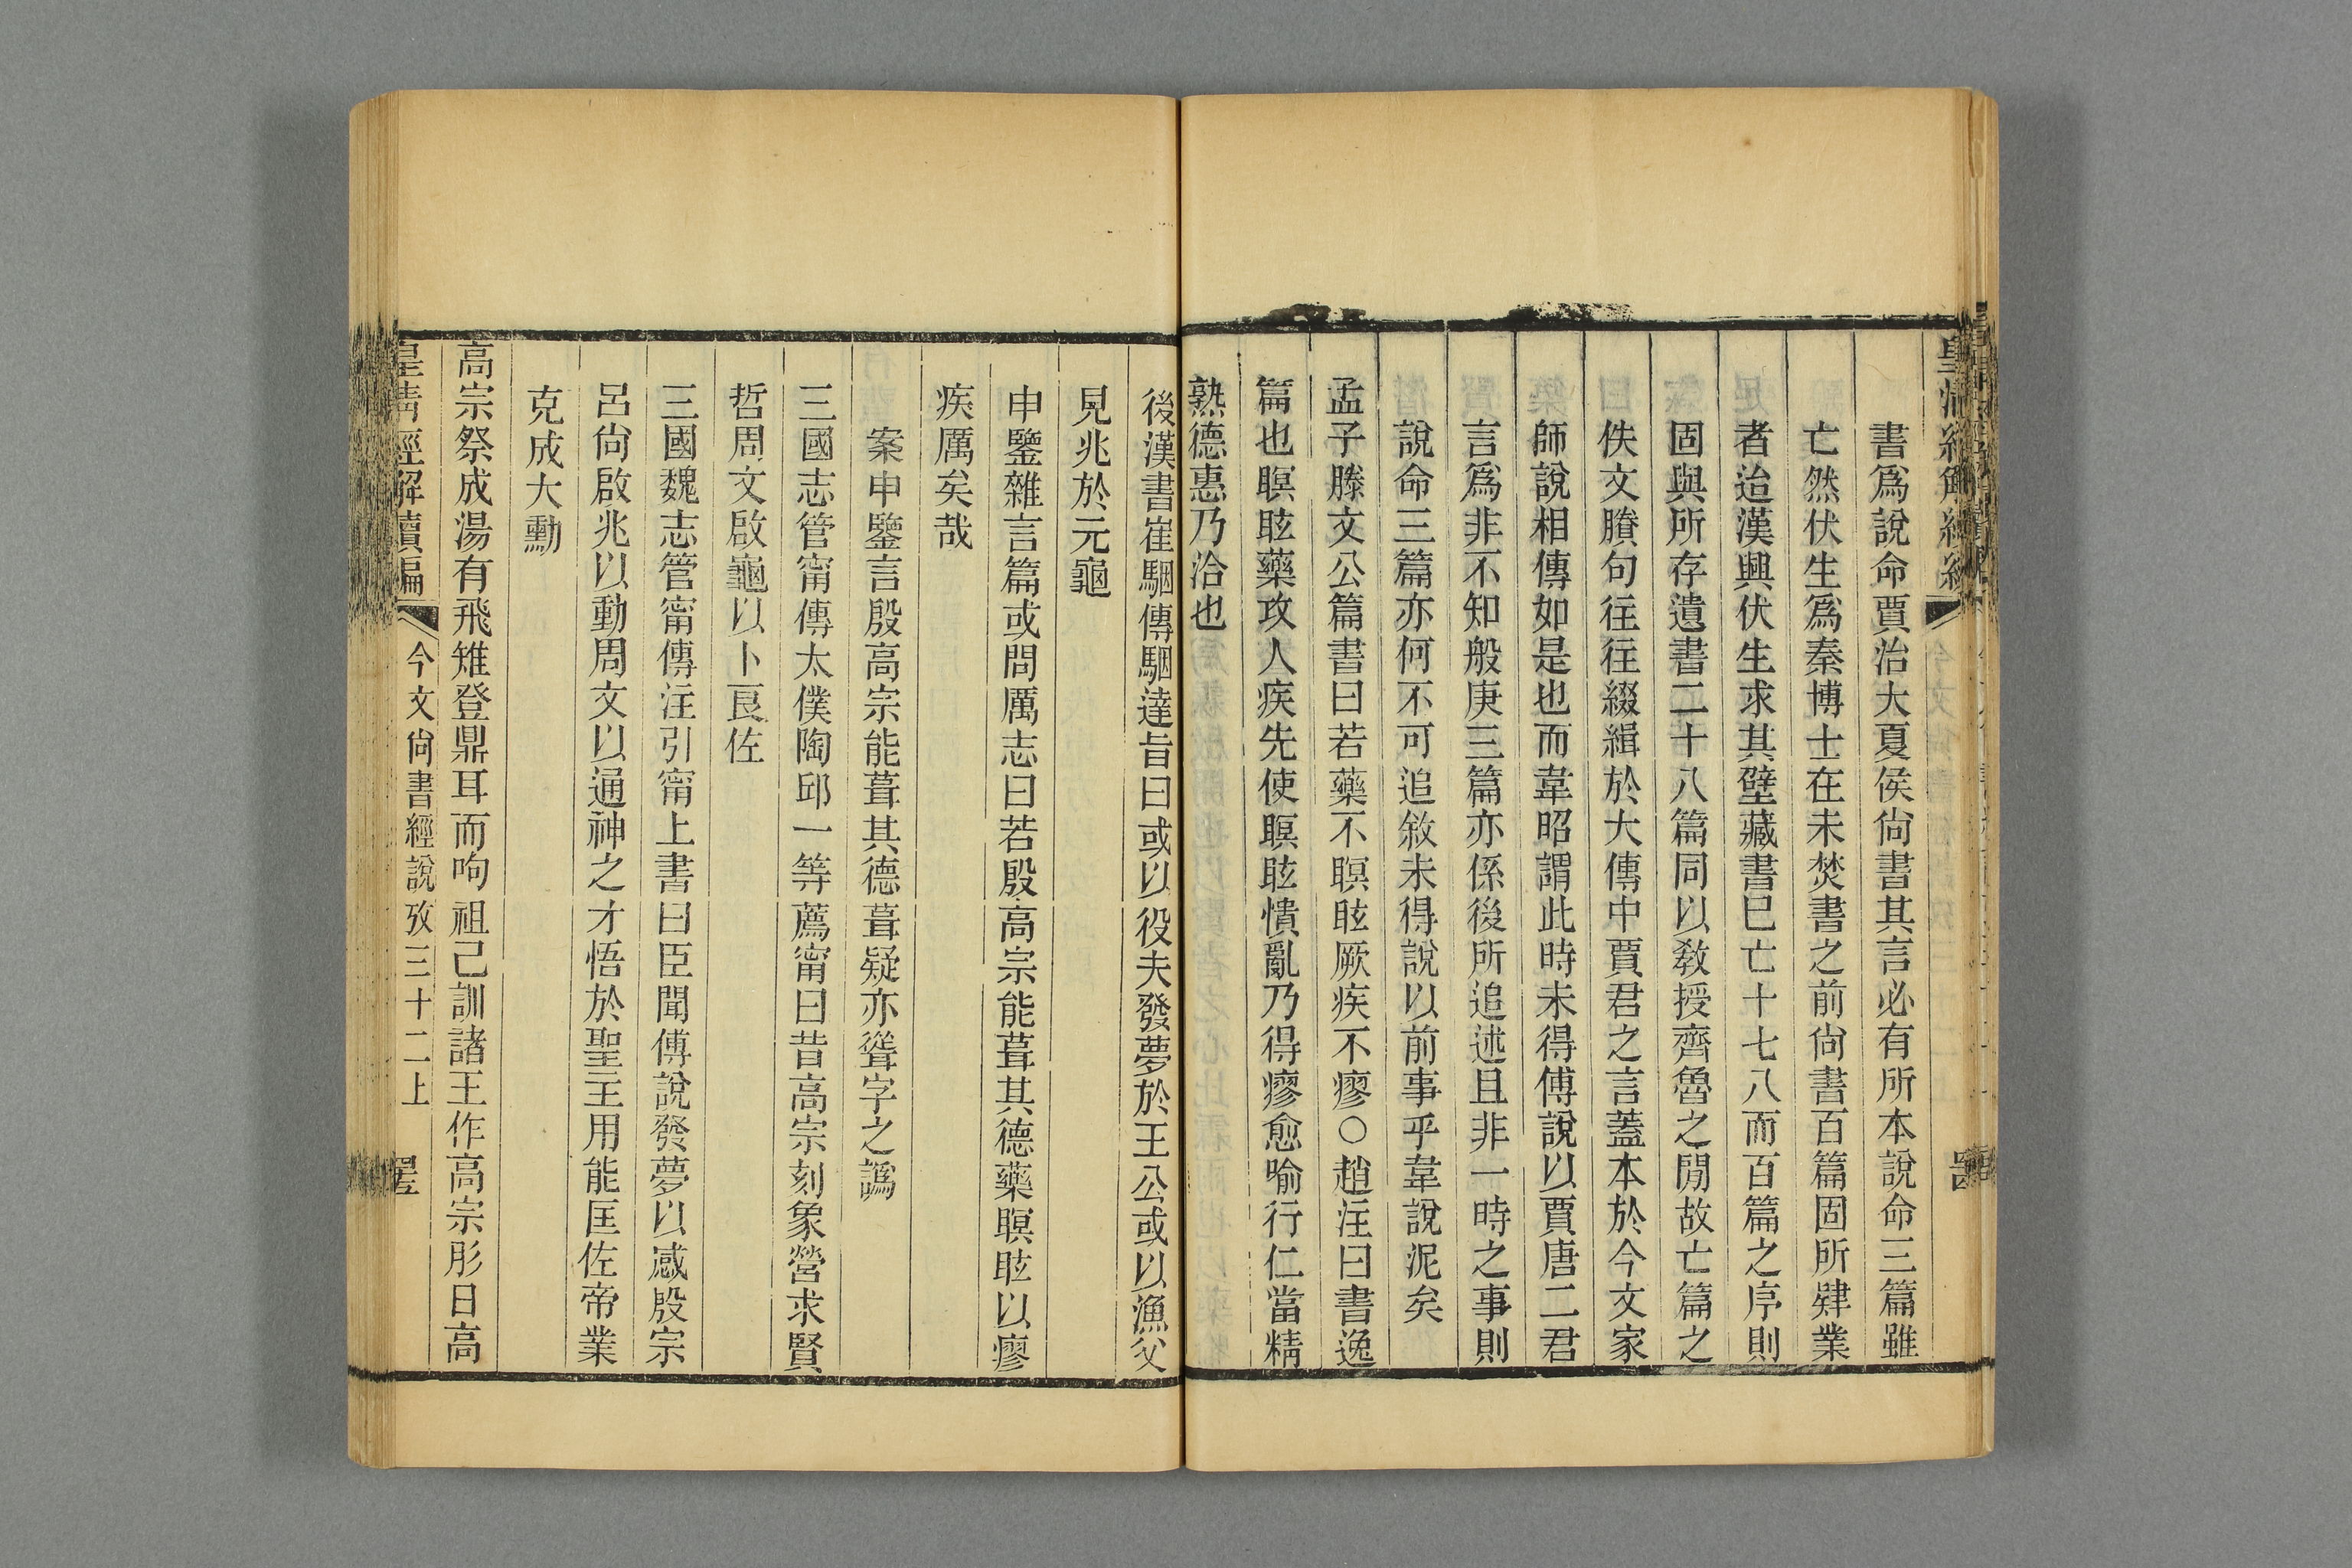 書爲說命賈治大夏侯尙書其言必有所本說命三篇雖
亡然伏生爲秦博士在未焚書之前尙書百篇固所肄業
者迨漢興伏生求其壁藏書已亡十七八而百篇之序則
固與所存遺書二十八篇同以敎授齊魯之閒故亡篇之
佚文賸句往往綴緝於大傳中賈君之言蓋本於今文家
師說相傳如是也而韋昭謂此時未得傅說以賈唐二君
言爲非不知般庚三篇亦係後所追述且非一時之事則
說命三篇亦何不可追敘未得說以前事乎韋說泥矣
孟子滕文公篇書曰若藥不瞑眩厥疾不瘳○趙注曰書逸
篇也瞑眩藥攻人疾先使瞑眩憒亂乃得瘳愈喻行仁當精
熟德惠乃洽也
後漢書崔駰傳駰達旨曰或以役夫發夢於王公或以漁父
見兆於元龜
申鑒雜言篇或問厲志曰若殷高宗能葺其德藥瞑眩以瘳
疾厲矣哉
案申鑒言殷高宗能葺其德葺疑亦聳字之譌
三國志管甯傳太僕陶邱一等薦甯曰昔高宗刻象營求賢
哲周文啟龜以卜良佐
三國魏志管甯傳注引甯上書曰臣聞傅說發夢以感殷宗
呂尙啟兆以動周文以通神之才悟於聖主用能匡佐帝業
克成大勳
高宗祭成湯有飛雉登鼎耳而呴祖己訓諸王作高宗肜日高
皇淸經解續編 今文尙書經說攷三十二上